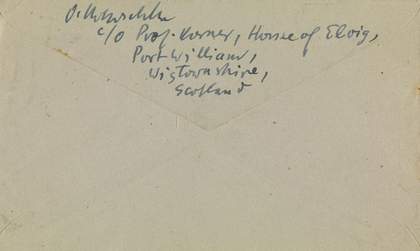 O. Kokoschka
c/o Prof. Korner, House of Elrig,
Port William,
Wigtownshire,
Scotland